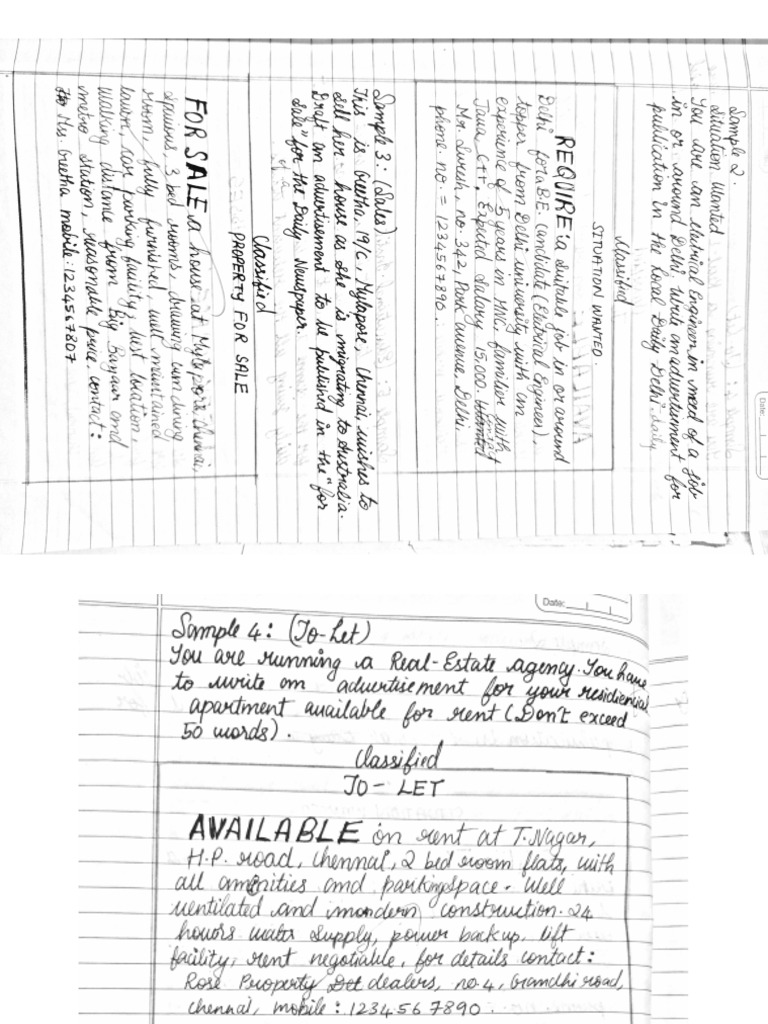 Sample 2.
Situation Wanted
You are an Electrical Engineer in need of a job
in or around Delhi. Write an advertisement for
publication in the local Daily Delhi. daily
Classified
SITUATION WANTED.
REQUIRE: a suitable job in or around
Delhi for a B.E. Candidate (Electrical Engineer),
topper from Delhi university with an
experience of 5 years in MNC. familiar with
Java, C++, Expected salary 15,000. contact
Mr. Suresh, no. 342, Park avenue, Delhi.
phone no = 1234567890.
Sample 3: (Sales)
This is Geetha, 19/C, Mylapore, Chennai, wishes to
sell her house as she is migrating to Australia.
Draft an advertisement to be published in the "for
Sale" for the Daily Newspaper.
Classified
PROPERTY FOR SALE
FOR SALE a house at Mylapore, chennai,
spacious, 3 bed rooms, drawing cum dining
room, fully furnished, well maintained
lawn, car parking facility, best location,
walking distance from Big Bazaar and
metro station, reasonable price, contact:
Ms. Geetha mobile: 1234567807
Date:
Date:
Sample 4: (To-Let)
You are running a Real-Estate agency. You have
to write an advertisement for your residiencial
apartment available for rent (Don't exceed
50 words).
Classified
TO-LET
AVAILABLE on rent at T.Nagar,
H.P. road, chennai, 2 bed room flats, with
all amenities and parking space. Well
ventilated and mordern construction. 24
houors water supply, power backup. lift
facility, rent negotiable, for details contact:
Rose Property dealers, no 4, Grandhi road,
chennai, mobile: 1234567890.